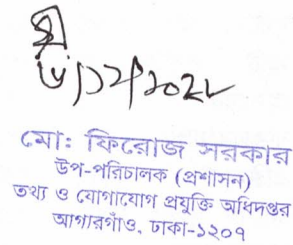 মো: ফিরোজ সরকার
উপ-পরিচালক (প্রশাসন)
তথ্য ও যোগাযোগ প্রযুক্তি অধিদপ্তর
আগারগাঁও, ঢাকা-১২০৭